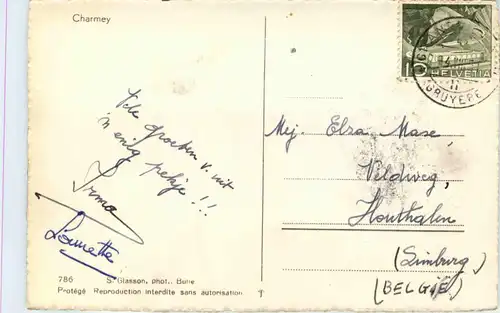 Charmey
HELVETIA
10
GRUYERE
Vele Groeten v. uit
'n enig pekje !!!
Irma
Mej. Elza Mase
Veldweg,
Houthalen
(Limburg)
(BELGIË)
786 S. Glasson, phot., Bulle
Protégé Reproduction interdite sans autorisation.